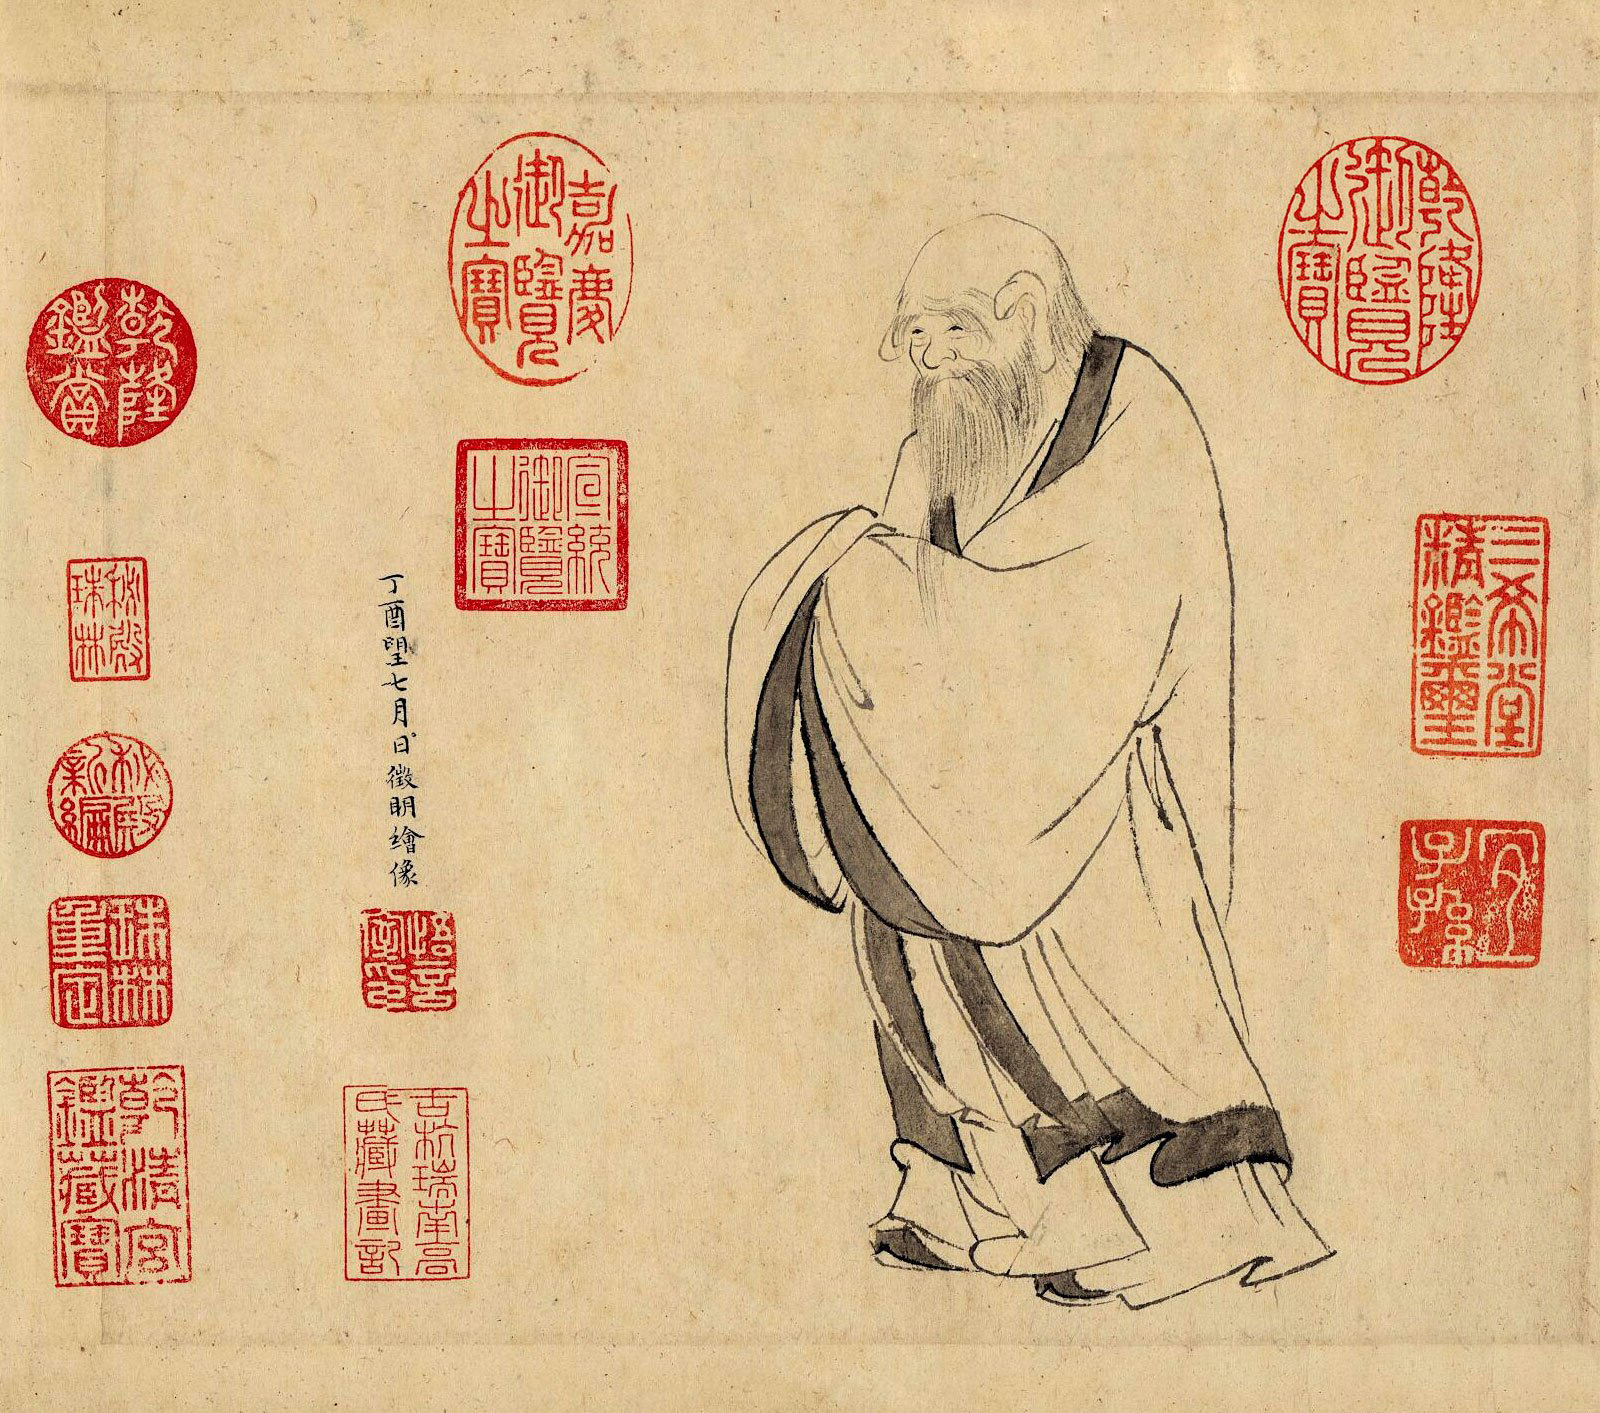 乾隆
御覽
之寶
三希堂
精鑑璽
宜
子孫
嘉慶
御覽
之寶
宣統
御覽
之寶
丁酉朢七月日徵明繪像
悟言
室印
古杭瑞南高
氏藏畫記
乾隆
鑑賞
秘殿
珠林
秘殿
新編
珠林
重定
乾清宮
鑑藏寶